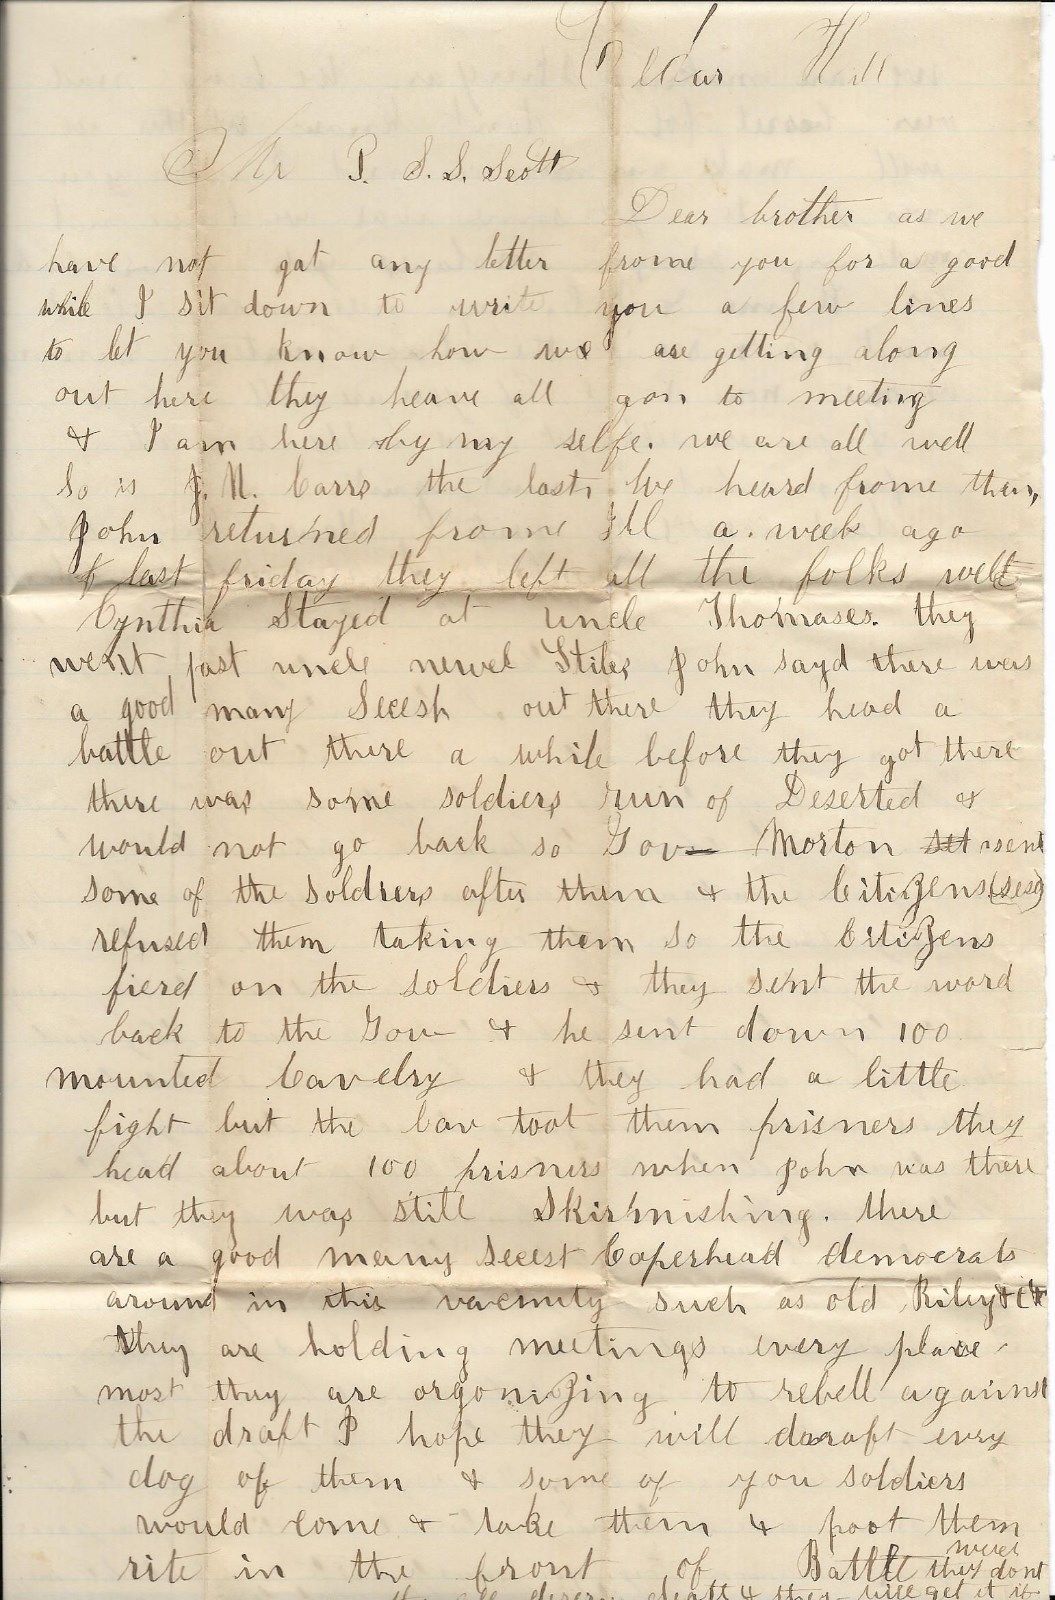 Cedar Hill
Mr P. S. S. Scott
Dear brother as we
have not gat any letter frome you for a good
while I sit down to write you a few lines
to let you know how we are getting along
out here they heave all gon to meeting
& I am here by my selfe. we are all well
So is J. N. Carrs the last We heard frome them,
John returned frome Ill a. week ago
& last friday they left all the folks well
Cynthia Stayed at uncle Thomases. they
went past uncle newel Stiles John sayd there was
a good many Secesh out there they head a
battle out there a while before they got there
there was some soldiers run of Deserted &
would not go back so Gov Morton set sent
some of the soldiers after them & the CitiZens (sesc)
refused them taking them so the CitiZens
fierd on the soldiers & they sent the word
back to the Gov & he sent down 100
mounted Cavelry & they had a little
fight but the Cav toot them prisners they
head about 100 prisners when John was there
but they was still Skirmishing. there
are a good meany secest Coperhead democrats
around in this vacenity such as old Riley &c &
they are holding meetings every place
most they are orgoniZing to rebell against
the draft I hope they will daraft evry
dog of them & some of you soldiers
would come & take them & poot them
rite in the front of Battle they dont
never
all deserv death & they will get it if